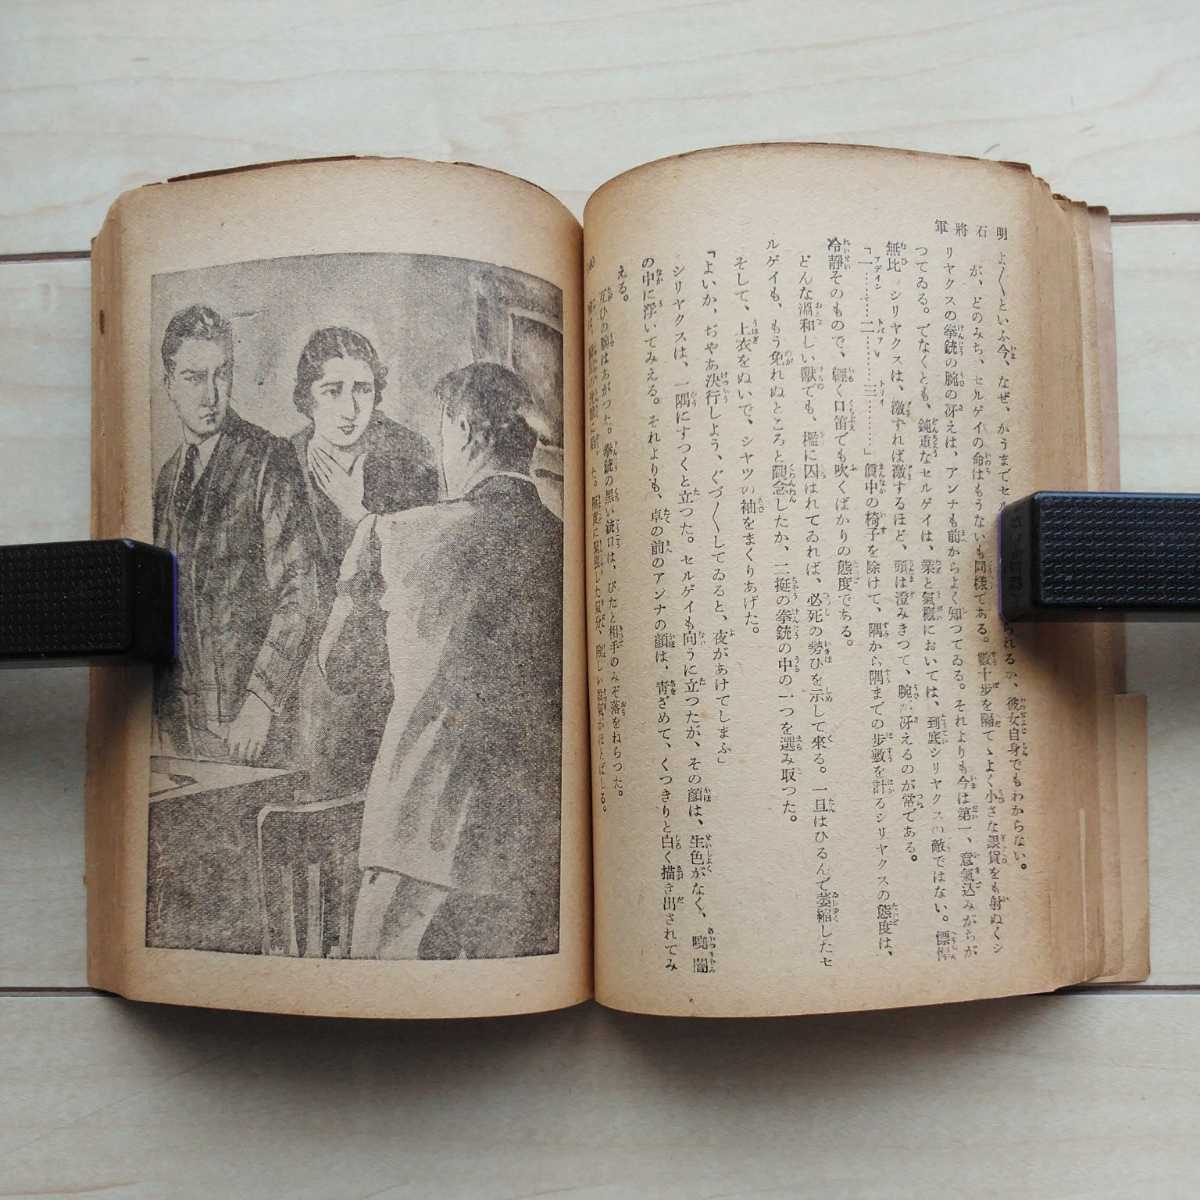 明石將軍
よ〱といふ今、なぜ、かうまでセ
られるか、彼女自身でもわからない。
が、どのみち、セルゲイの命はもうないも同樣である。數十歩を隔てゝよく小さな銀貨をも射ぬくシ
リヤクスの拳銃の腕の冴えは、アンナも前からよく知つてゐる。それよりも今は第一、意氣込みがちが
つてゐる。でなくとも、鈍重なセルゲイは、業と氣概においては、到底シリヤクスの敵ではない。慓悍
無比シリヤクスは、激すれば激するほど、頭は澄みきつて、腕が冴えるのが常である。
「一………二………三………」眞中の椅子を除けて、隅から隅までの歩數を計るシリヤクスの態度は、
冷靜そのもので、輕く口笛でも吹くばかりの態度である。
どんな溫和しい獸でも、檻に囚はれてゐれば、必死の勢ひを示して來る。一旦はひるんで萎縮したセ
ルゲイも、もう免れぬところと觀念したか、二挺の拳銃の中の一つを選み取つた。
そして、上衣をぬいで、シヤツの袖をまくりあげた。
「よいか、ぢやあ決行しよう、ぐづ〱してゐると、夜があけてしまふ」
シリヤクスは、一隅にすつくと立つた。セルゲイも向うに立つたが、その顏は、生色がなく、曉闇
の中に浮いてみえる。それよりも、卓の前のアンナの顏は、青ざめて、くつきりと白く描き出されてみ
える。
互ひの腕はあがつた。拳銃の黒い銃口は、ぴたと相手のみぞ落をねらつた。